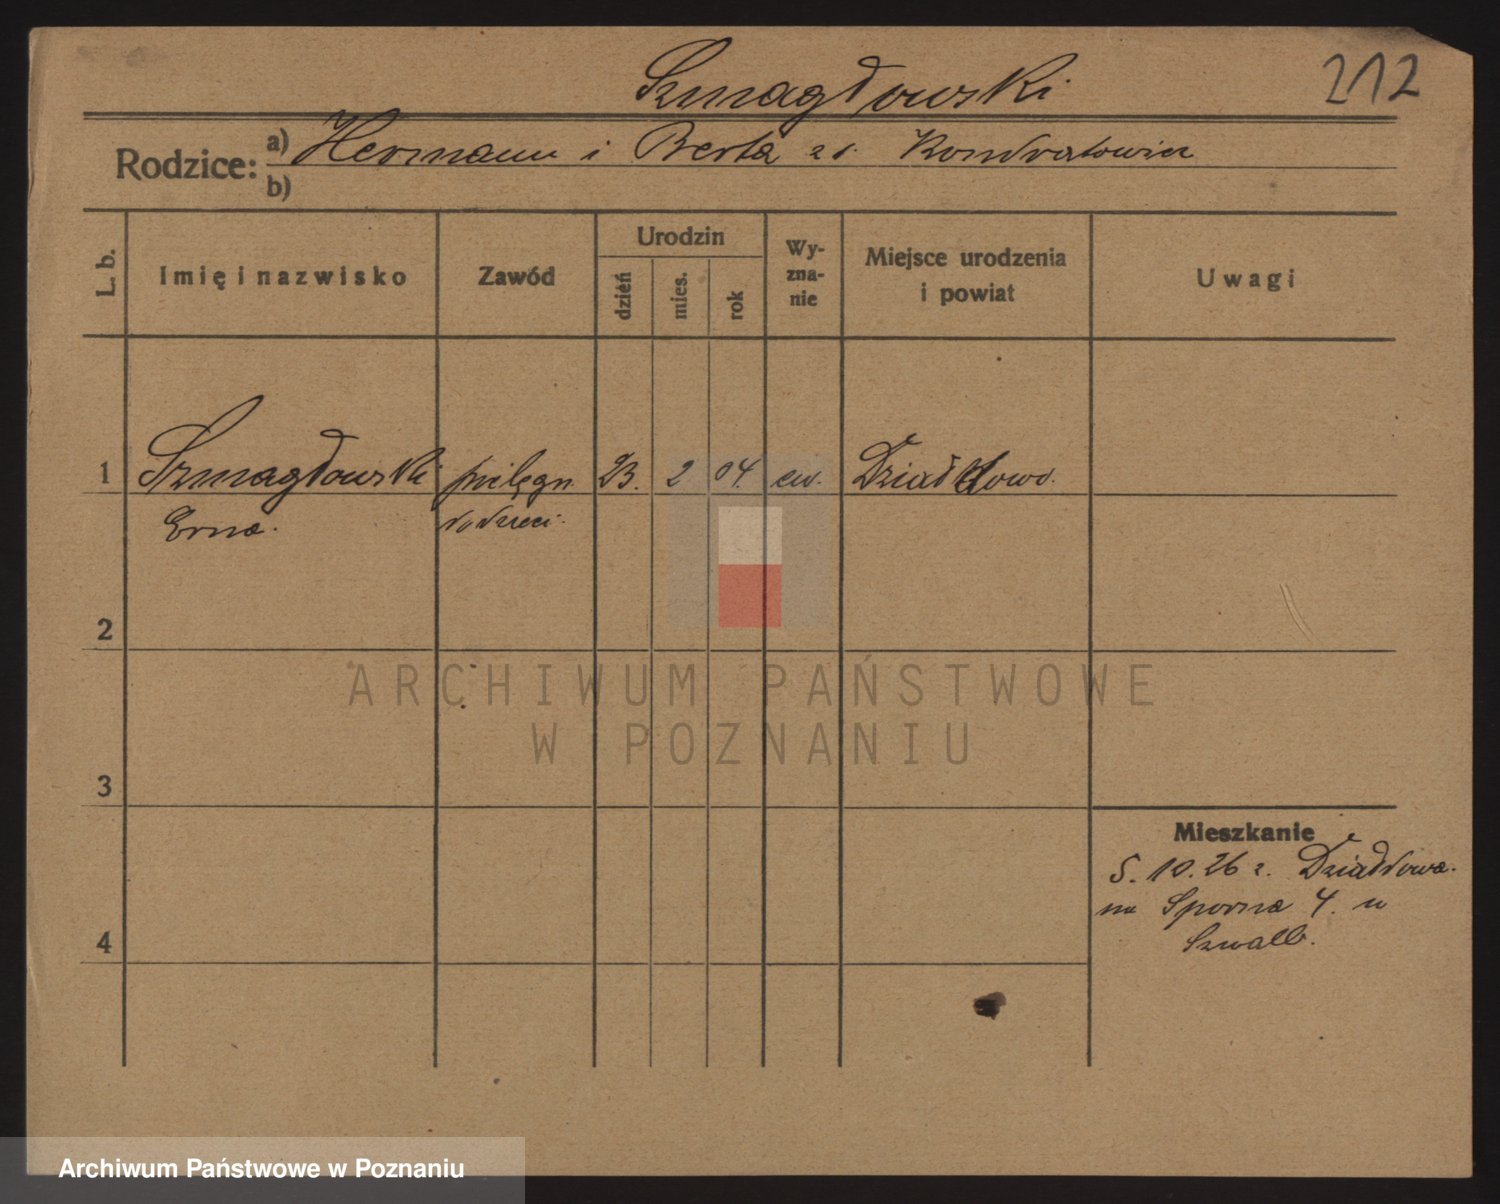 Szmagdowski
212
Rodzice: a) Hermann i Berta z d. Kondratowicz
b)
L. b.
Imię i nazwisko
Zawód
Urodzin
dzień
mies.
rok
Wy-
zna-
nie
Miejsce urodzenia
i powiat
Uwagi
1 Szmagdowski pielęgn. 23. 2 04. ew. Działdowo.
Erna. do dzieci.
2
3
4
Mieszkanie
5. 10. 26 z. Działdowa.
na Sporna 4. u
Szwalb.
ARCHIWUM PAŃSTWOWE
W POZNANIU
Archiwum Państwowe w Poznaniu